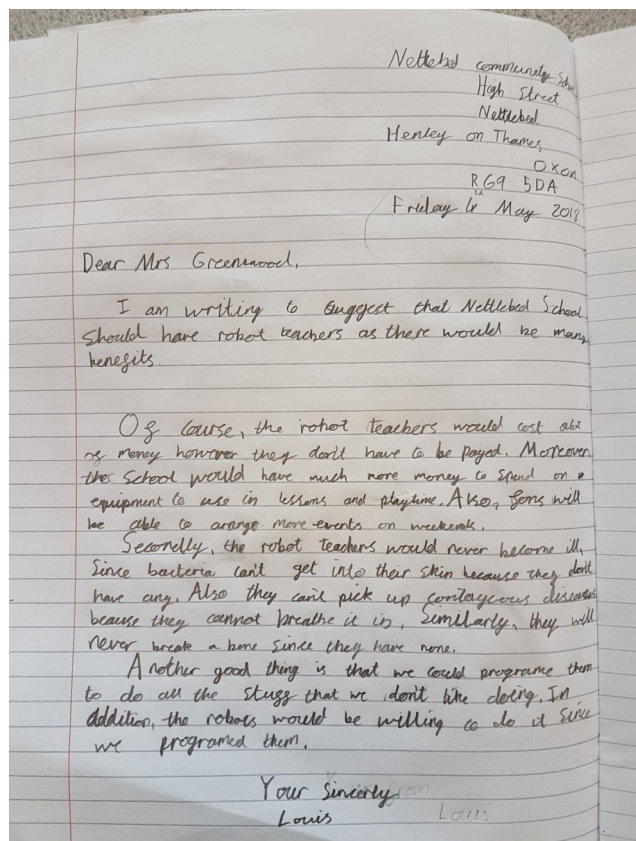 Nettlebed community School
High Street
Nettlebed
Henley on Thames
Oxon
RG9 5DA
Friday 4 May 2018
Dear Mrs Greenwood,
I am writing to suggest that Nettlebed School
should have robot teachers as there would be many
benefits.
Of course, the robot teachers would cost alot
of money however they don't have to be payed. Moreover,
the School would have much more money to spend on
equipment to use in lessons and playtime. Also, fons will
be able to arange more events on weekends.
Secondly, the robot teachers would never become ill,
Since bacteria can't get into their skin because they don't
have any. Also they can't pick up contageous diseases
because they cannot breathe it in, Similarly, they will
never break a bone since they have none.
Another good thing is that we could programe them
to do all the stuff that we don't like doing. In
addition, the robots would be willing to do it since
we programed them.
Your Sincerly
Louis
Louis